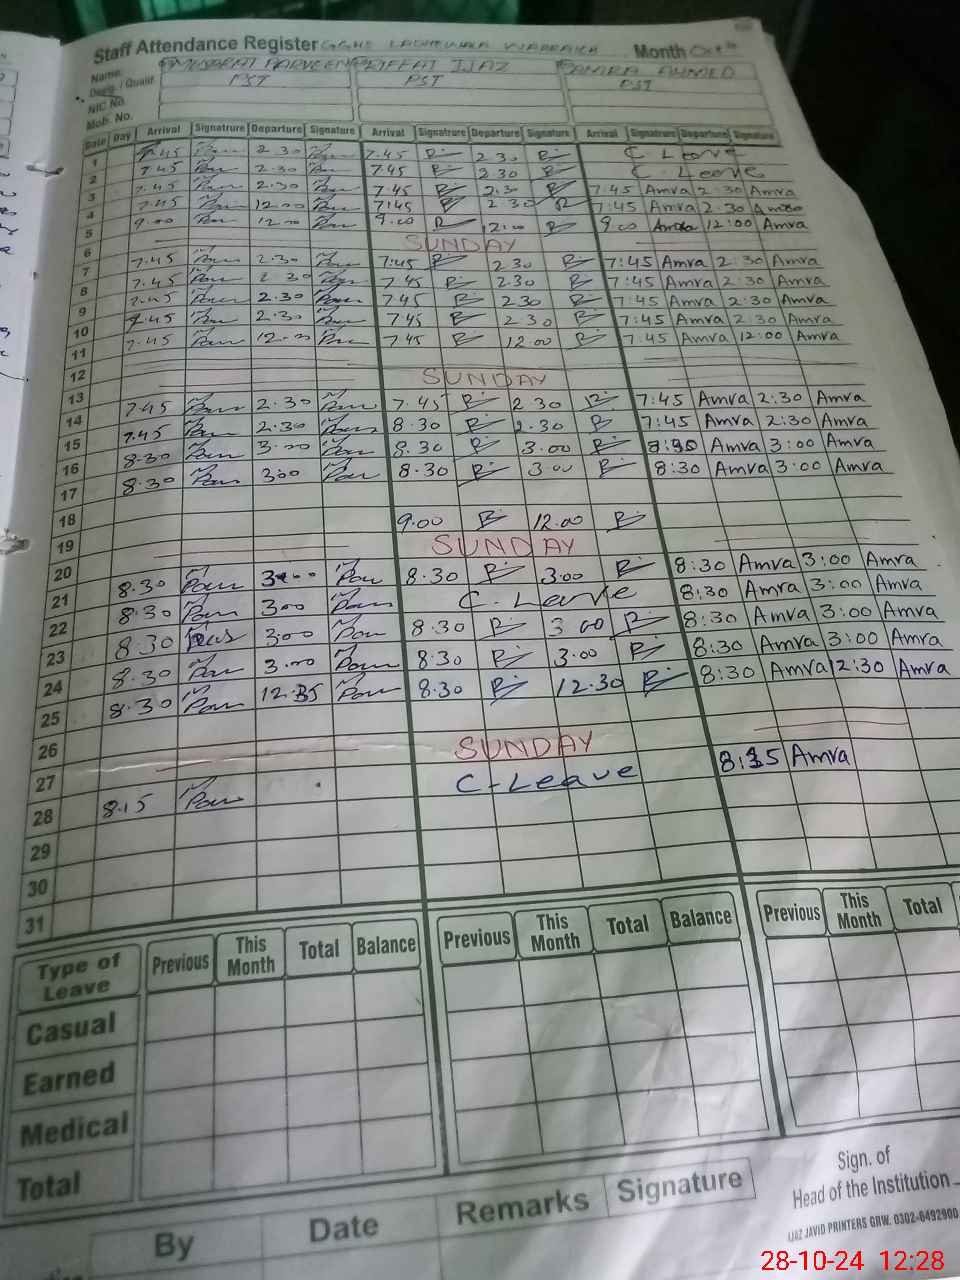 Staff Attendance Register GGHS Month Oct
Name: MUSARAT PARVEEN RIFFAT IJAZ SAMRA AHMED
Desig. / Qualif. PST PST PST
NIC No.
Mob. No.
Date Day Arrival Signatrure Departure Signature Arrival Signatrure Departure Signature Arrival Signatrure Departure Signature
1 7.45 2.30 7.45 R 2.30 R C Leave
2 7.45 2.30 7.45 R 2.30 R C. Leave
3 7.45 2.30 7.45 R 2.30 R 7:45 Amra 2:30 Amra
4 7.45 12.00 7:45 R 2 30 R 7:45 Amra 2:30 Amra
5 9.00 12.00 9.00 R 12.00 R 9 00 Amra 12:00 Amra
6 SUNDAY
7 7.45 2.30 7:45 R 2.30 R 7:45 Amra 2:30 Amra
8 7.45 2.30 7.45 R 2.30 R 7:45 Amra 2:30 Amra
9 7.45 2.30 7.45 R 2.30 R 7:45 Amra 2:30 Amra
10 7.45 2.30 7.45 R 2.30 R 7:45 Amra 2:30 Amra
11 7.45 12.00 7.45 R 12.00 R 7:45 Amra 12:00 Amra
12
13 SUNDAY
14 7.45 2.30 7.45 R 2.30 R 7:45 Amra 2:30 Amra
15 7.45 2.30 8.30 R 2.30 R 7:45 Amra 2:30 Amra
16 8.30 3.00 8.30 R 3.00 R 8:30 Amra 3:00 Amra
17 8.30 3.00 8.30 R 3.00 R 8:30 Amra 3:00 Amra
18
19 9.00 R 12.00 R
20 SUNDAY
21 8.30 3.00 8.30 R 3.00 R 8:30 Amra 3:00 Amra
22 8.30 3.00 C. Leave 8:30 Amra 3:00 Amra
23 8.30 3.00 8.30 R 3 00 R 8:30 Amra 3:00 Amra
24 8.30 3.00 8.30 R 3.00 R 8:30 Amra 3:00 Amra
25 8.30 12.35 8.30 R 12.30 R 8:30 Amra 12:30 Amra
26
27 SUNDAY
28 8.15 C-Leave 8:15 Amra
29
30
31
Type of Leave Previous This Month Total Balance Previous This Month Total Balance Previous This Month Total
Casual
Earned
Medical
Total
By Date Remarks Signature
Sign. of
Head of the Institution
IJAZ JAVID PRINTERS GRW. 0302-6492900
28-10-24 12:28